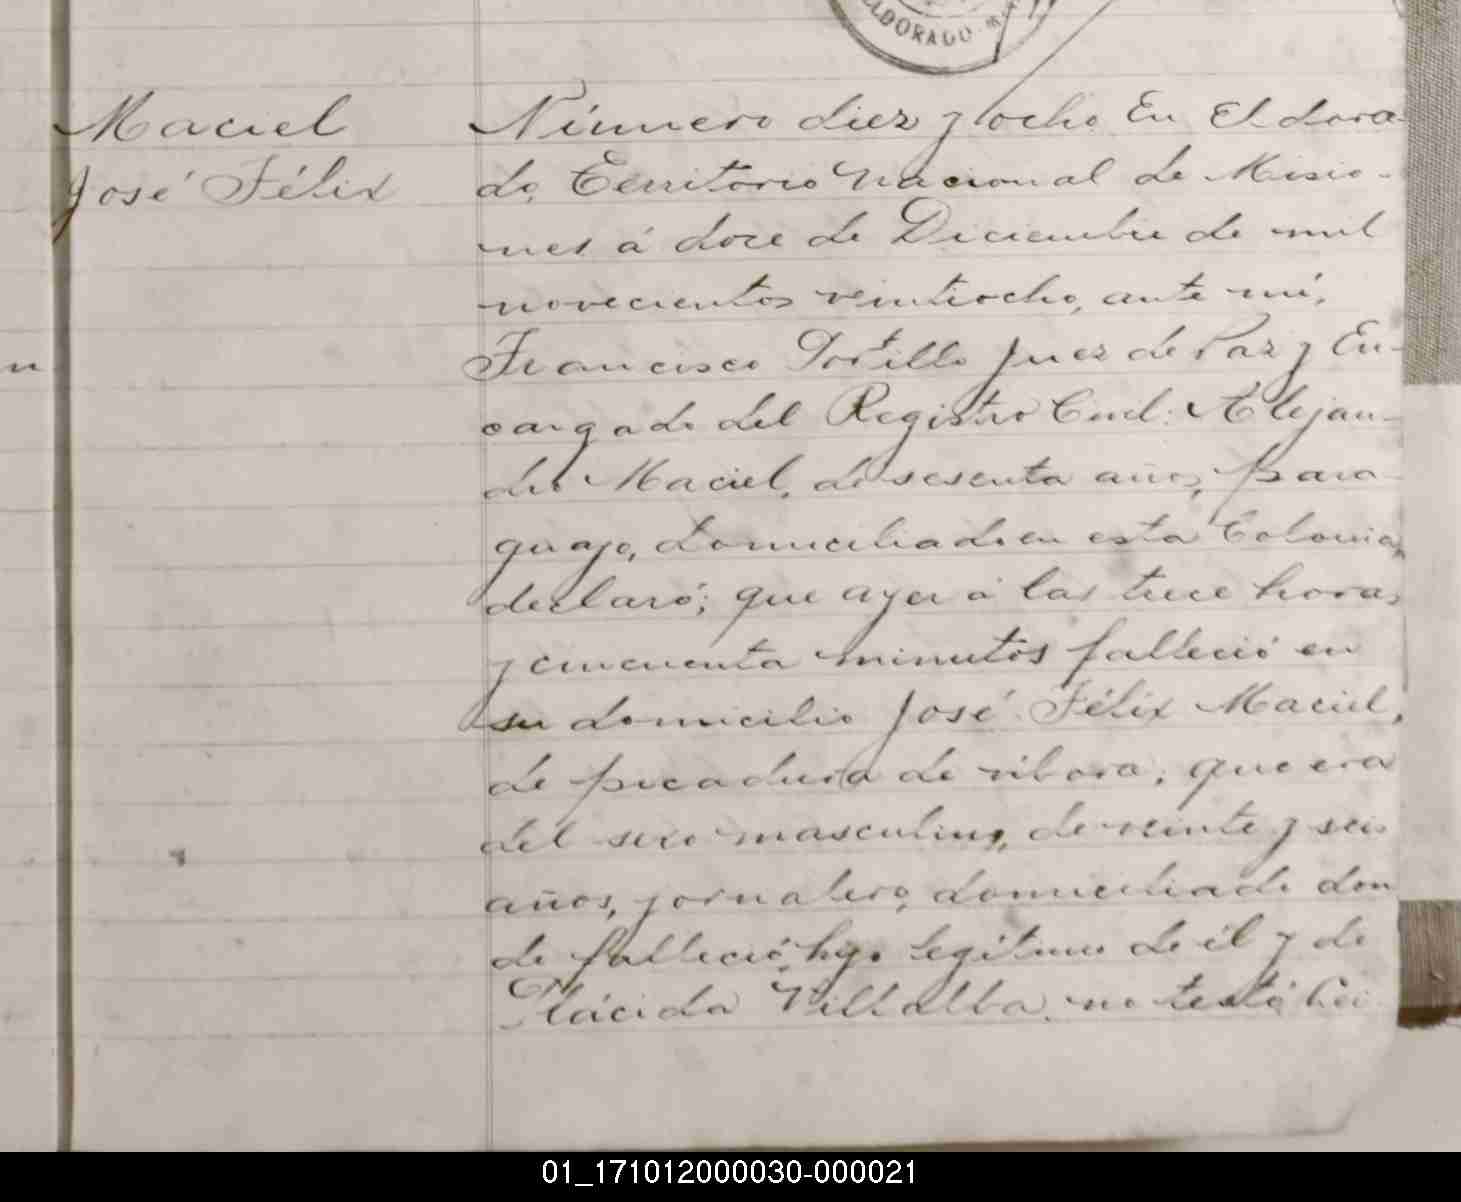 ELDORADO
Maciel
José Félix
Número diez y ocho. En Eldora-
do, Territorio Nacional de Misio-
nes á doce de Diciembre de mil
novecientos veintiocho, ante mí,
Francisco Portillo Juez de Paz y En-
cargado del Registro Civil: Alejan-
dro Maciel, de sesenta años, para-
guayo, domiciliado en esta Colonia,
declaró; que ayer á las trece horas
y cincuenta minutos falleció en
su domicilio José Félix Maciel,
de picadura de víbora; que era
del sexo masculino, de veinte y seis
años, jornalero, domiciliado don
de falleció, hijo legítimo de él y de
Plácida Villalba. no testó. Lei
01_171012000030-000021